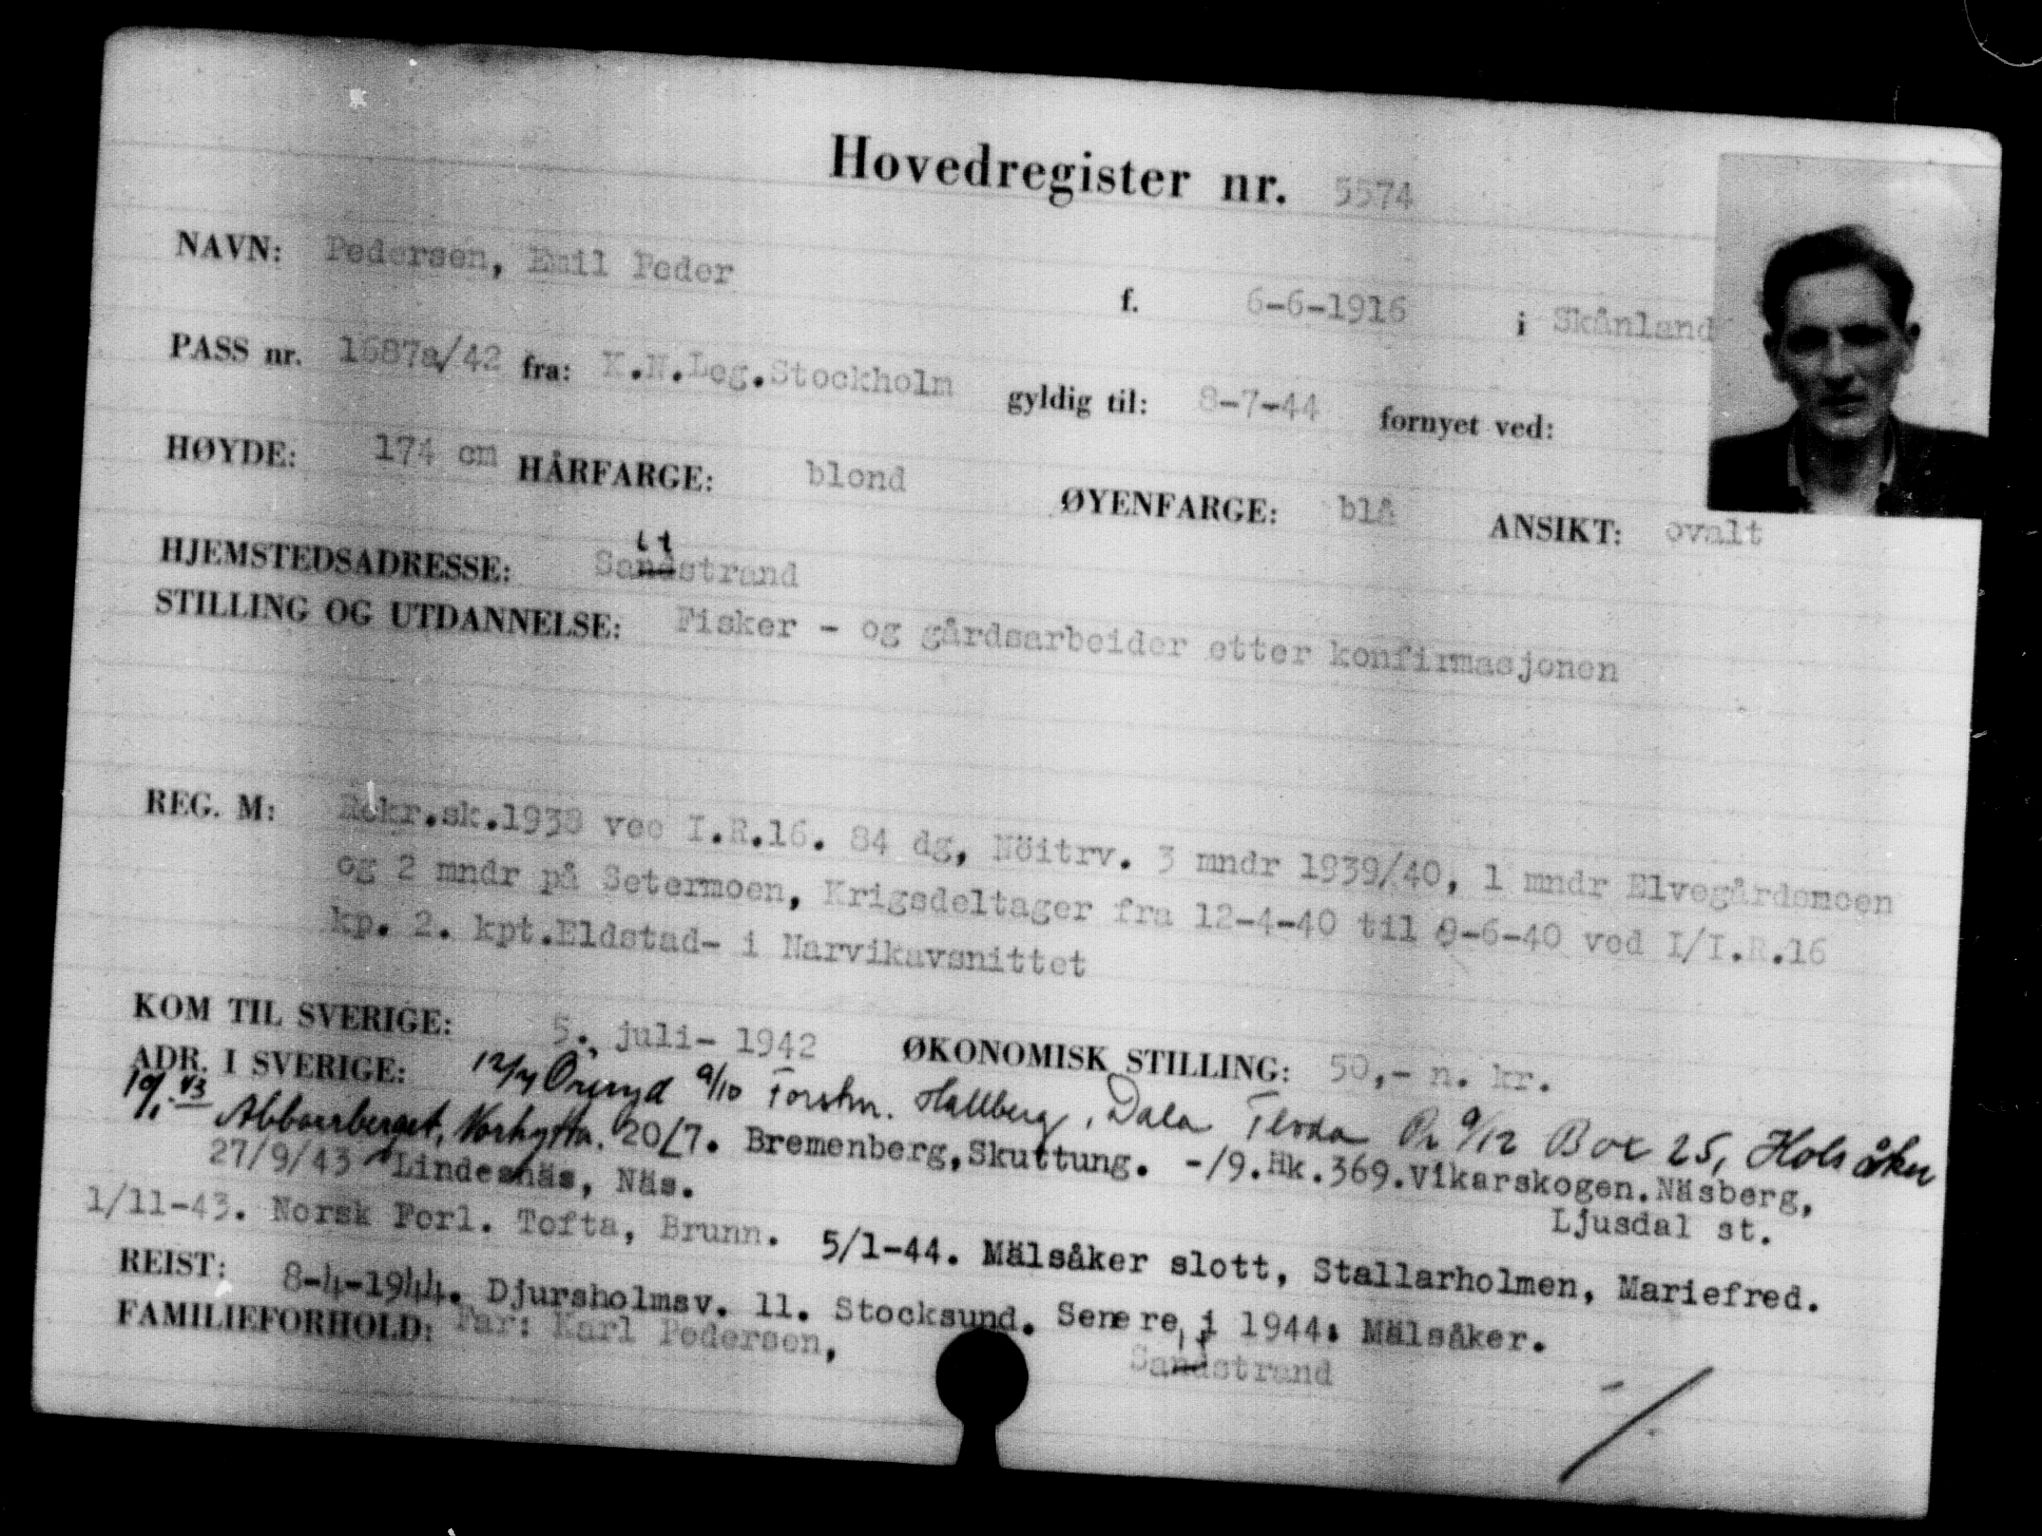 Hovedregister nr. 5574
NAVN: Pedersen, Emil Peder f. 6-6-1916 i Skånland
PASS nr. 1687a/42 fra: K.N.Leg.Stockholm gyldig til: 8-7-44 fornyet ved:
HØYDE: 174 cm HÅRFARGE: blond ØYENFARGE: blå ANSIKT: ovalt
HJEMSTEDSADRESSE: Sandstrand
STILLING OG UTDANNELSE: Fisker - og gårdsarbeider etter konfirmasjonen
REG. M: Rekr.sk.1938 ved I.R.16. 84 dg, Nöitrv. 3 mndr 1939/40, 1 mndr Elvegårdsmoen
og 2 mndr på Setermoen, Krigsdeltager fra 12-4-40 til 9-6-40 ved I/I.R.16
kp. 2. kpt.Eldstad- i Narvikavsnittet
KOM TIL SVERIGE: 5. juli- 1942 ØKONOMISK STILLING: 50,- n. kr.
ADR. I SVERIGE: 12/7 Öreryd 9/10 Forstkn. Hallberg, Dala Floda 9/12 Box 25, Holsåker
19/1.43 Abborrberget, Norhyttan. 20/7. Bremenberg,Skuttung. -/9.Hk.369.Vikarskogen.Näsberg,
27/9/43 Lindesnäs, Näs. Ljusdal st.
1/11-43. Norsk Forl. Tofta, Brunn. 5/1-44. Mälsåker slott, Stallarholmen, Mariefred.
REIST: 8-4-1944. Djursholmsv. 11. Stocksund. Senere i 1944: Mälsåker.
FAMILIEFORHOLD: Far: Karl Pedersen, Sandstrand